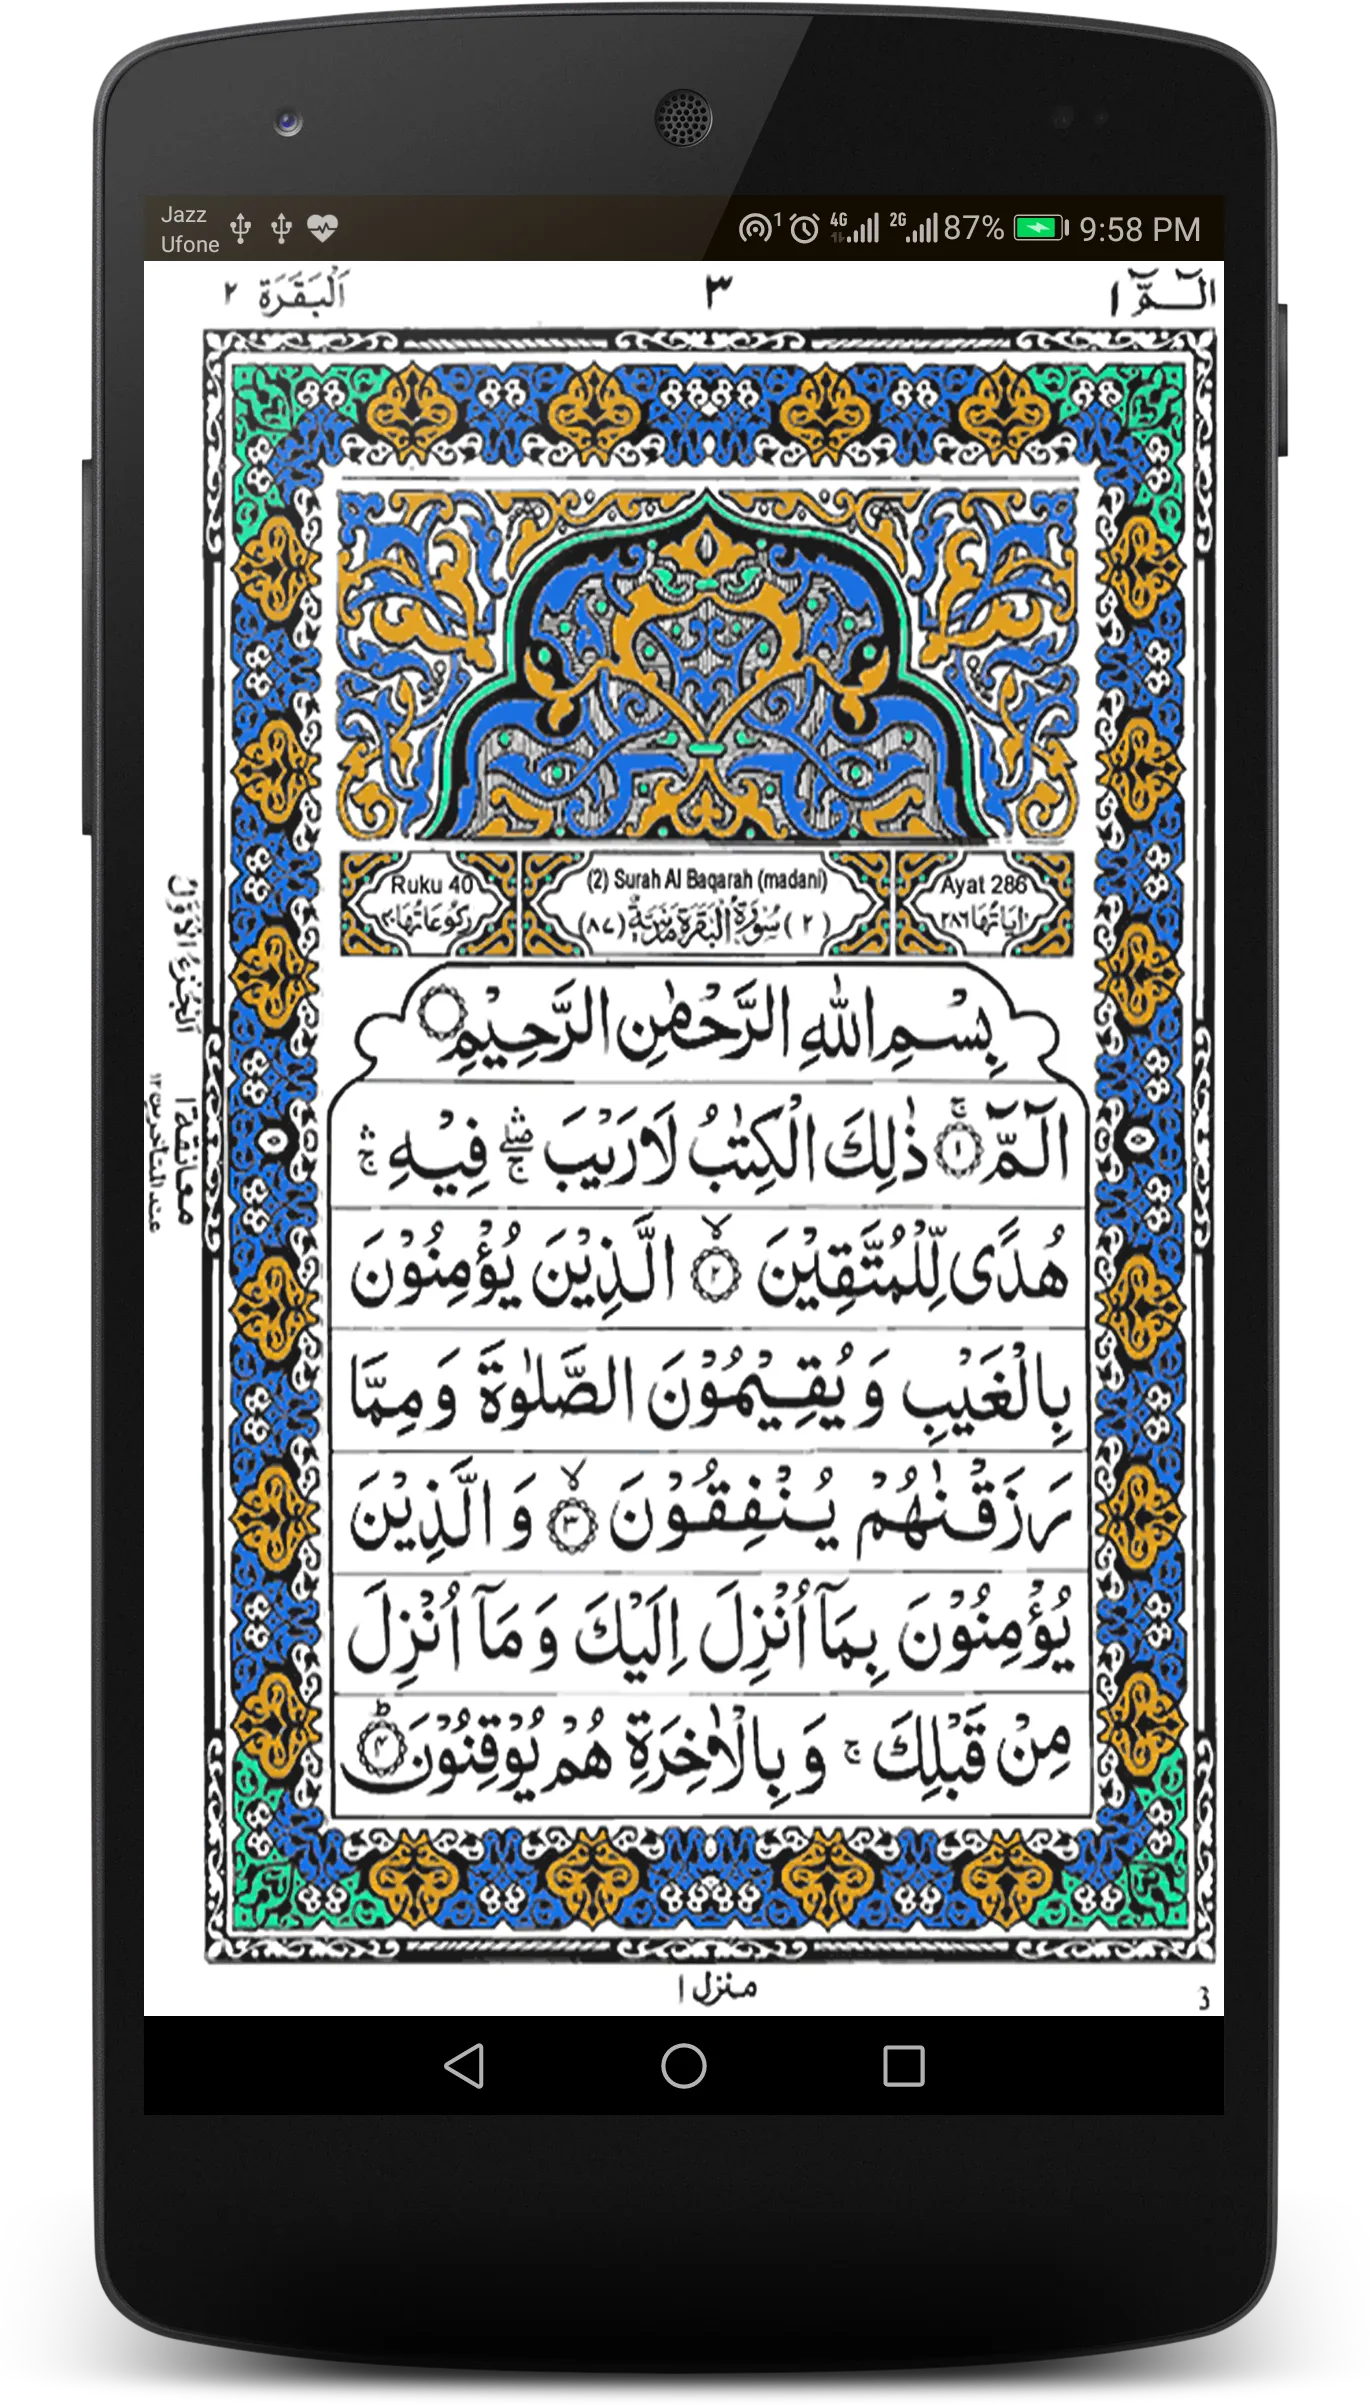 Jazz
Ufone
1 4G 2G 87% 9:58 PM
الٓـمّٓ ١
٣
اَلْبَقَرَة ٢
Ayat 286
(2) Surah Al Baqarah (madani)
Ruku 40
اٰيَاتُهَا ٢٨٦
(٢) سُوْرَةُ الْبَقَرَةِ مَدَنِيَّةٌ (٨٧)
رُكُوْعَاتُهَا ٤٠
بِسْمِ اللّٰهِ الرَّحْمٰنِ الرَّحِيْمِ
الٓمّٓ ۚ ١ ذٰلِكَ الْكِتٰبُ لَا رَيْبَ ۛۖۚ فِيْهِ ۛۚ
هُدًى لِّلْمُتَّقِيْنَ ۙ ٢ الَّذِيْنَ يُؤْمِنُوْنَ
بِالْغَيْبِ وَ يُقِيْمُوْنَ الصَّلٰوةَ وَ مِمَّا
رَزَقْنٰهُمْ يُنْفِقُوْنَ ۙ ٣ وَ الَّذِيْنَ
يُؤْمِنُوْنَ بِمَاۤ اُنْزِلَ اِلَيْكَ وَ مَاۤ اُنْزِلَ
مِنْ قَبْلِكَ ۚ وَ بِالْاٰخِرَةِ هُمْ يُوْقِنُوْنَ ؕ ٤
اَلْجُزْءُ الْاَوَّلُ
معانقة ١
عند المتاخرين ١٢
منزل ١
3